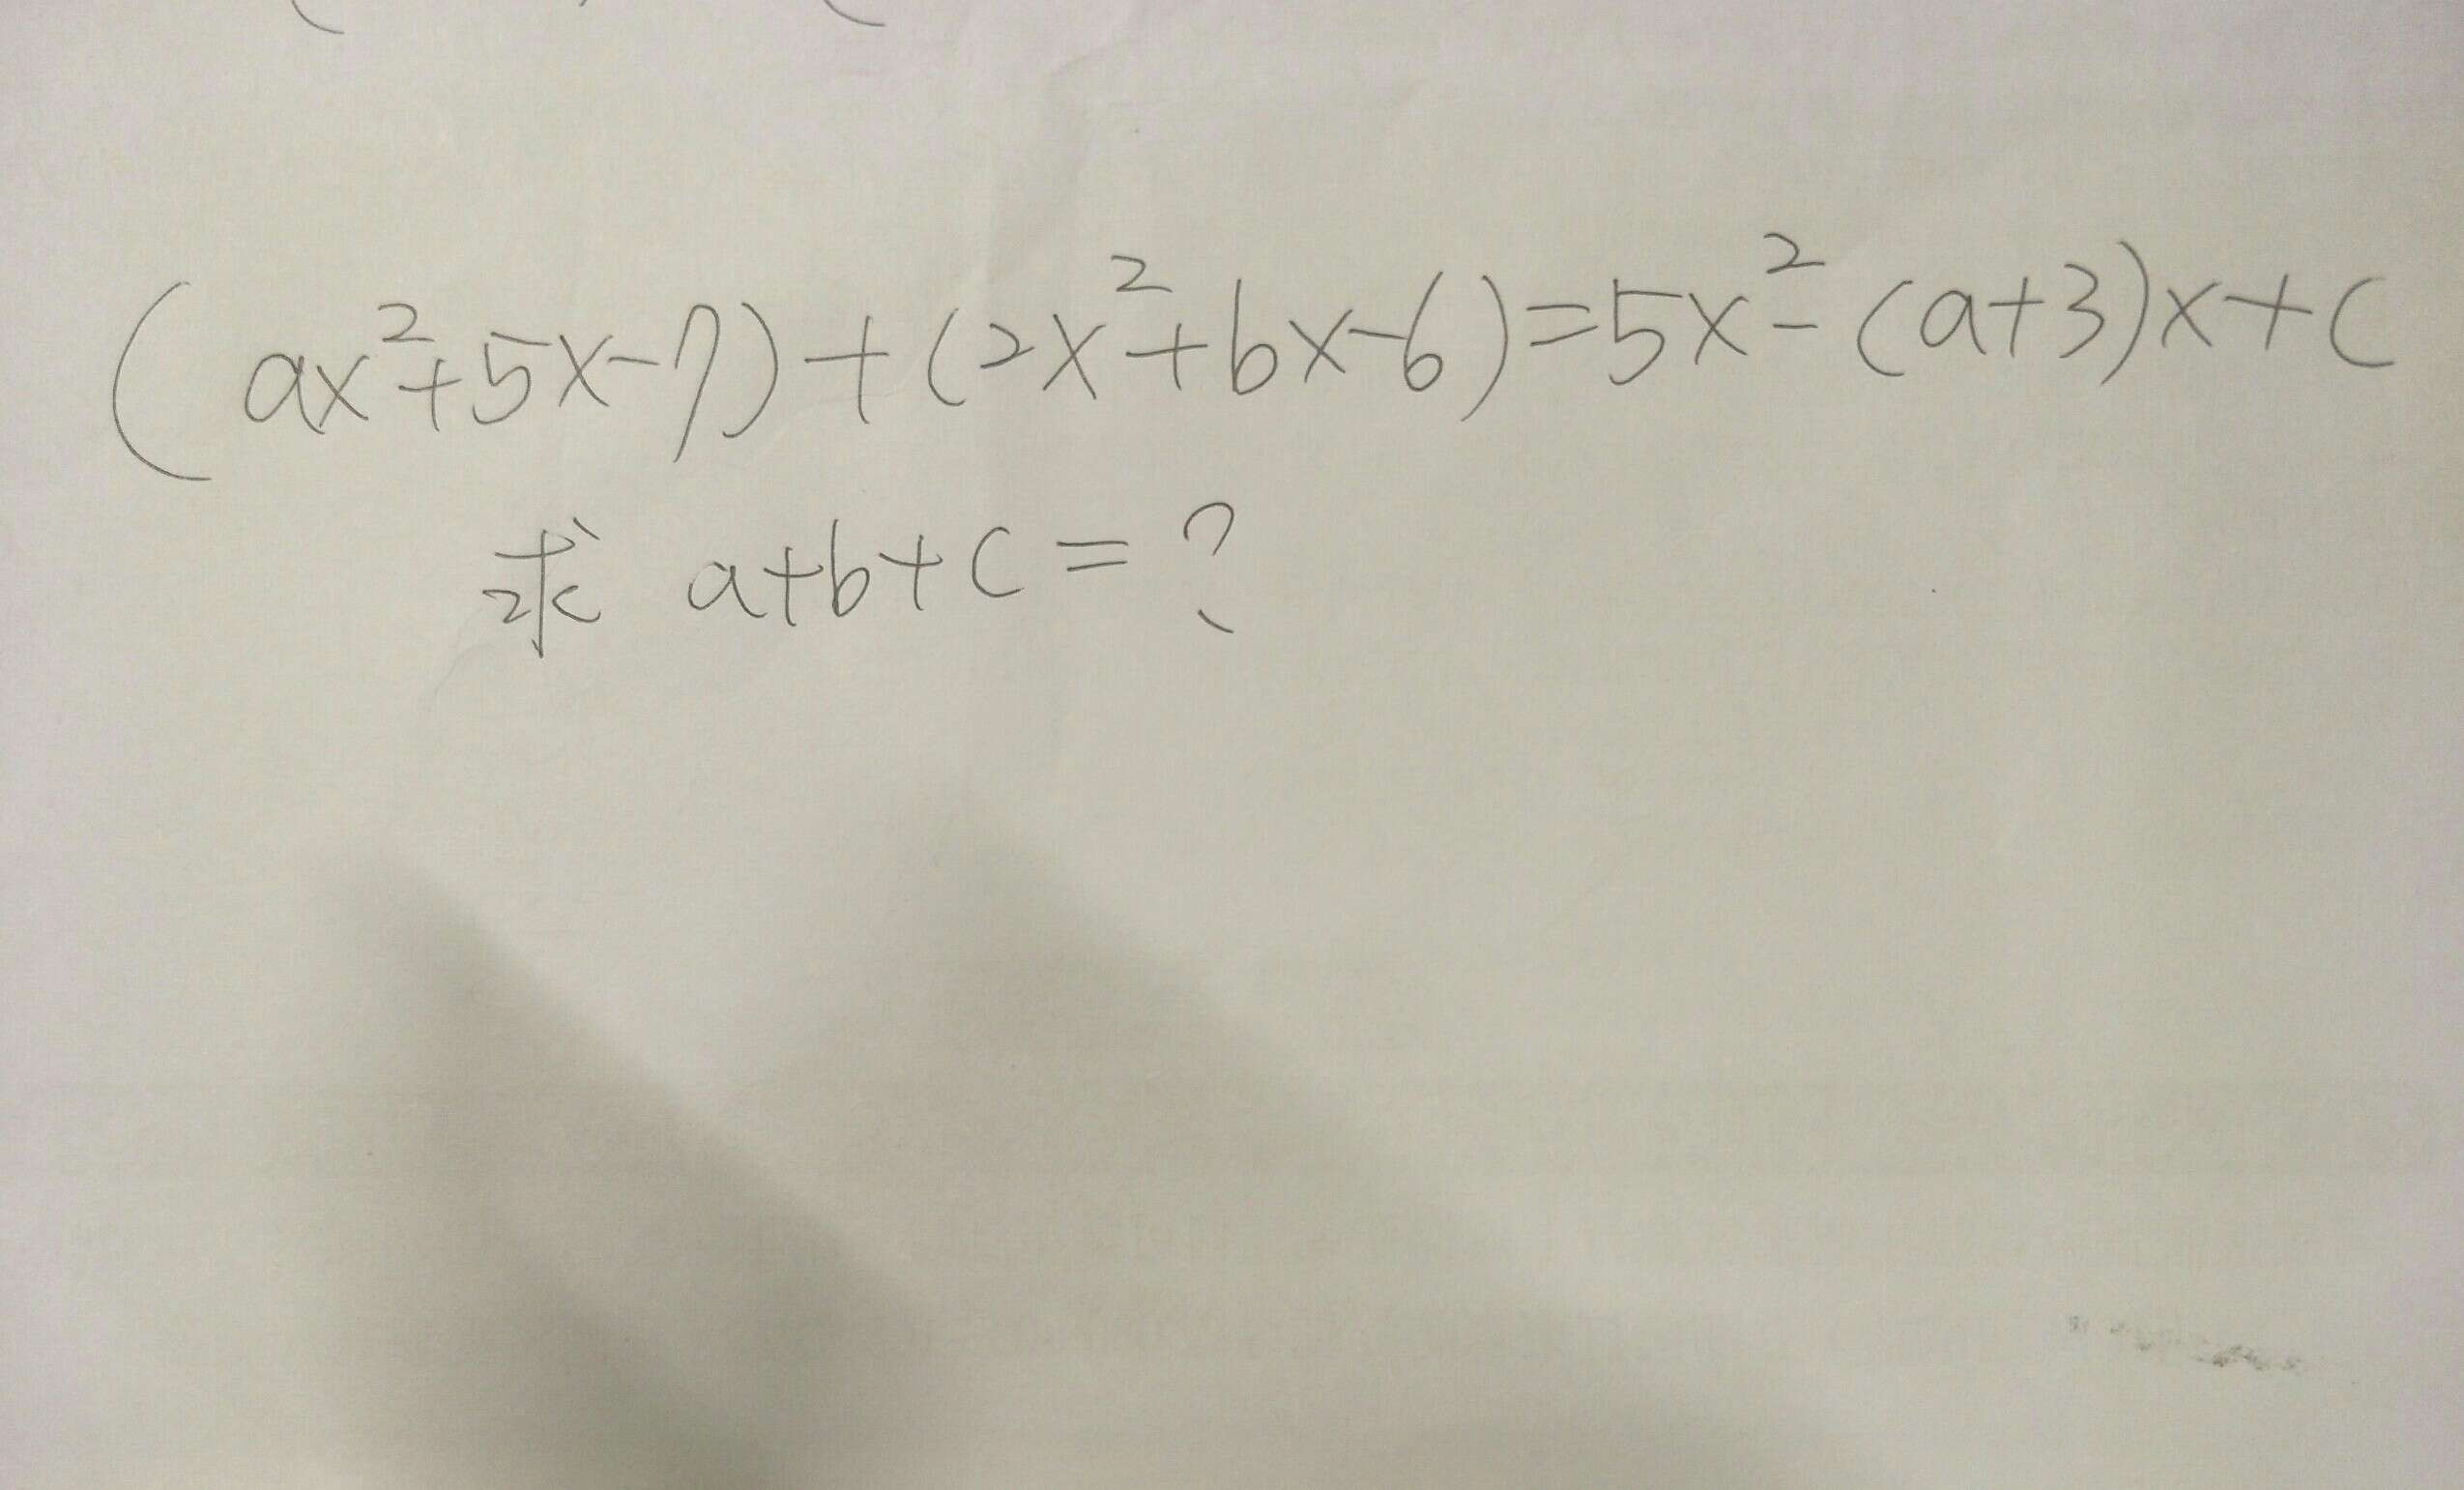 (ax²+5x-7)+(2x²+bx-6)=5x²-(a+3)x+c
求 a+b+c=?